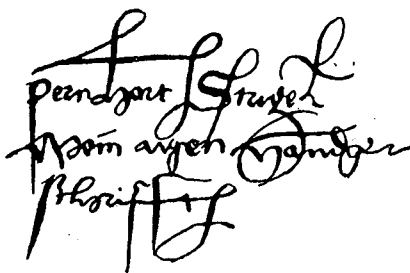 pernhart Strigel
Mein aigen handt
schrifft